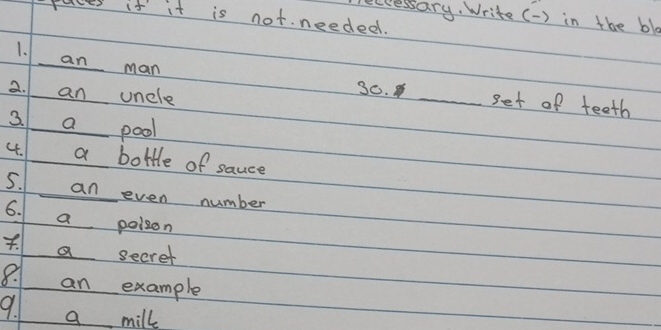 if it is not needed. Write (-) in the
1. an man
2. an uncle
30. set of teeth
3. a pool
4. a bottle of sauce
5. an even number
6. a poison
7. a secret
8. an example
9. a milk